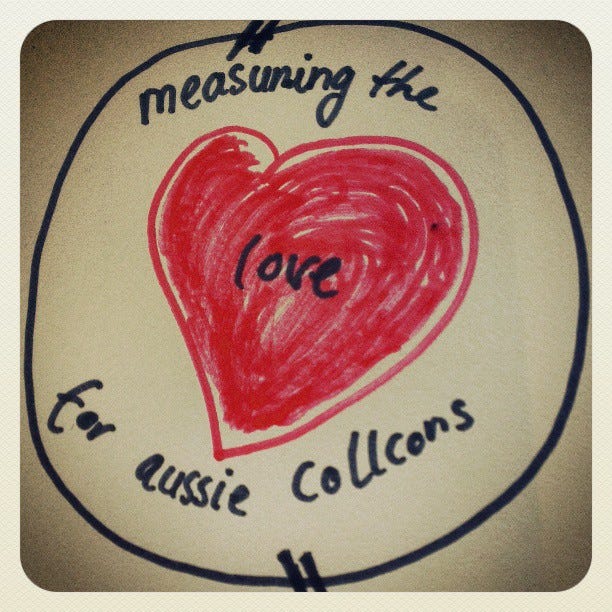 measuring the
love
for aussie collcons